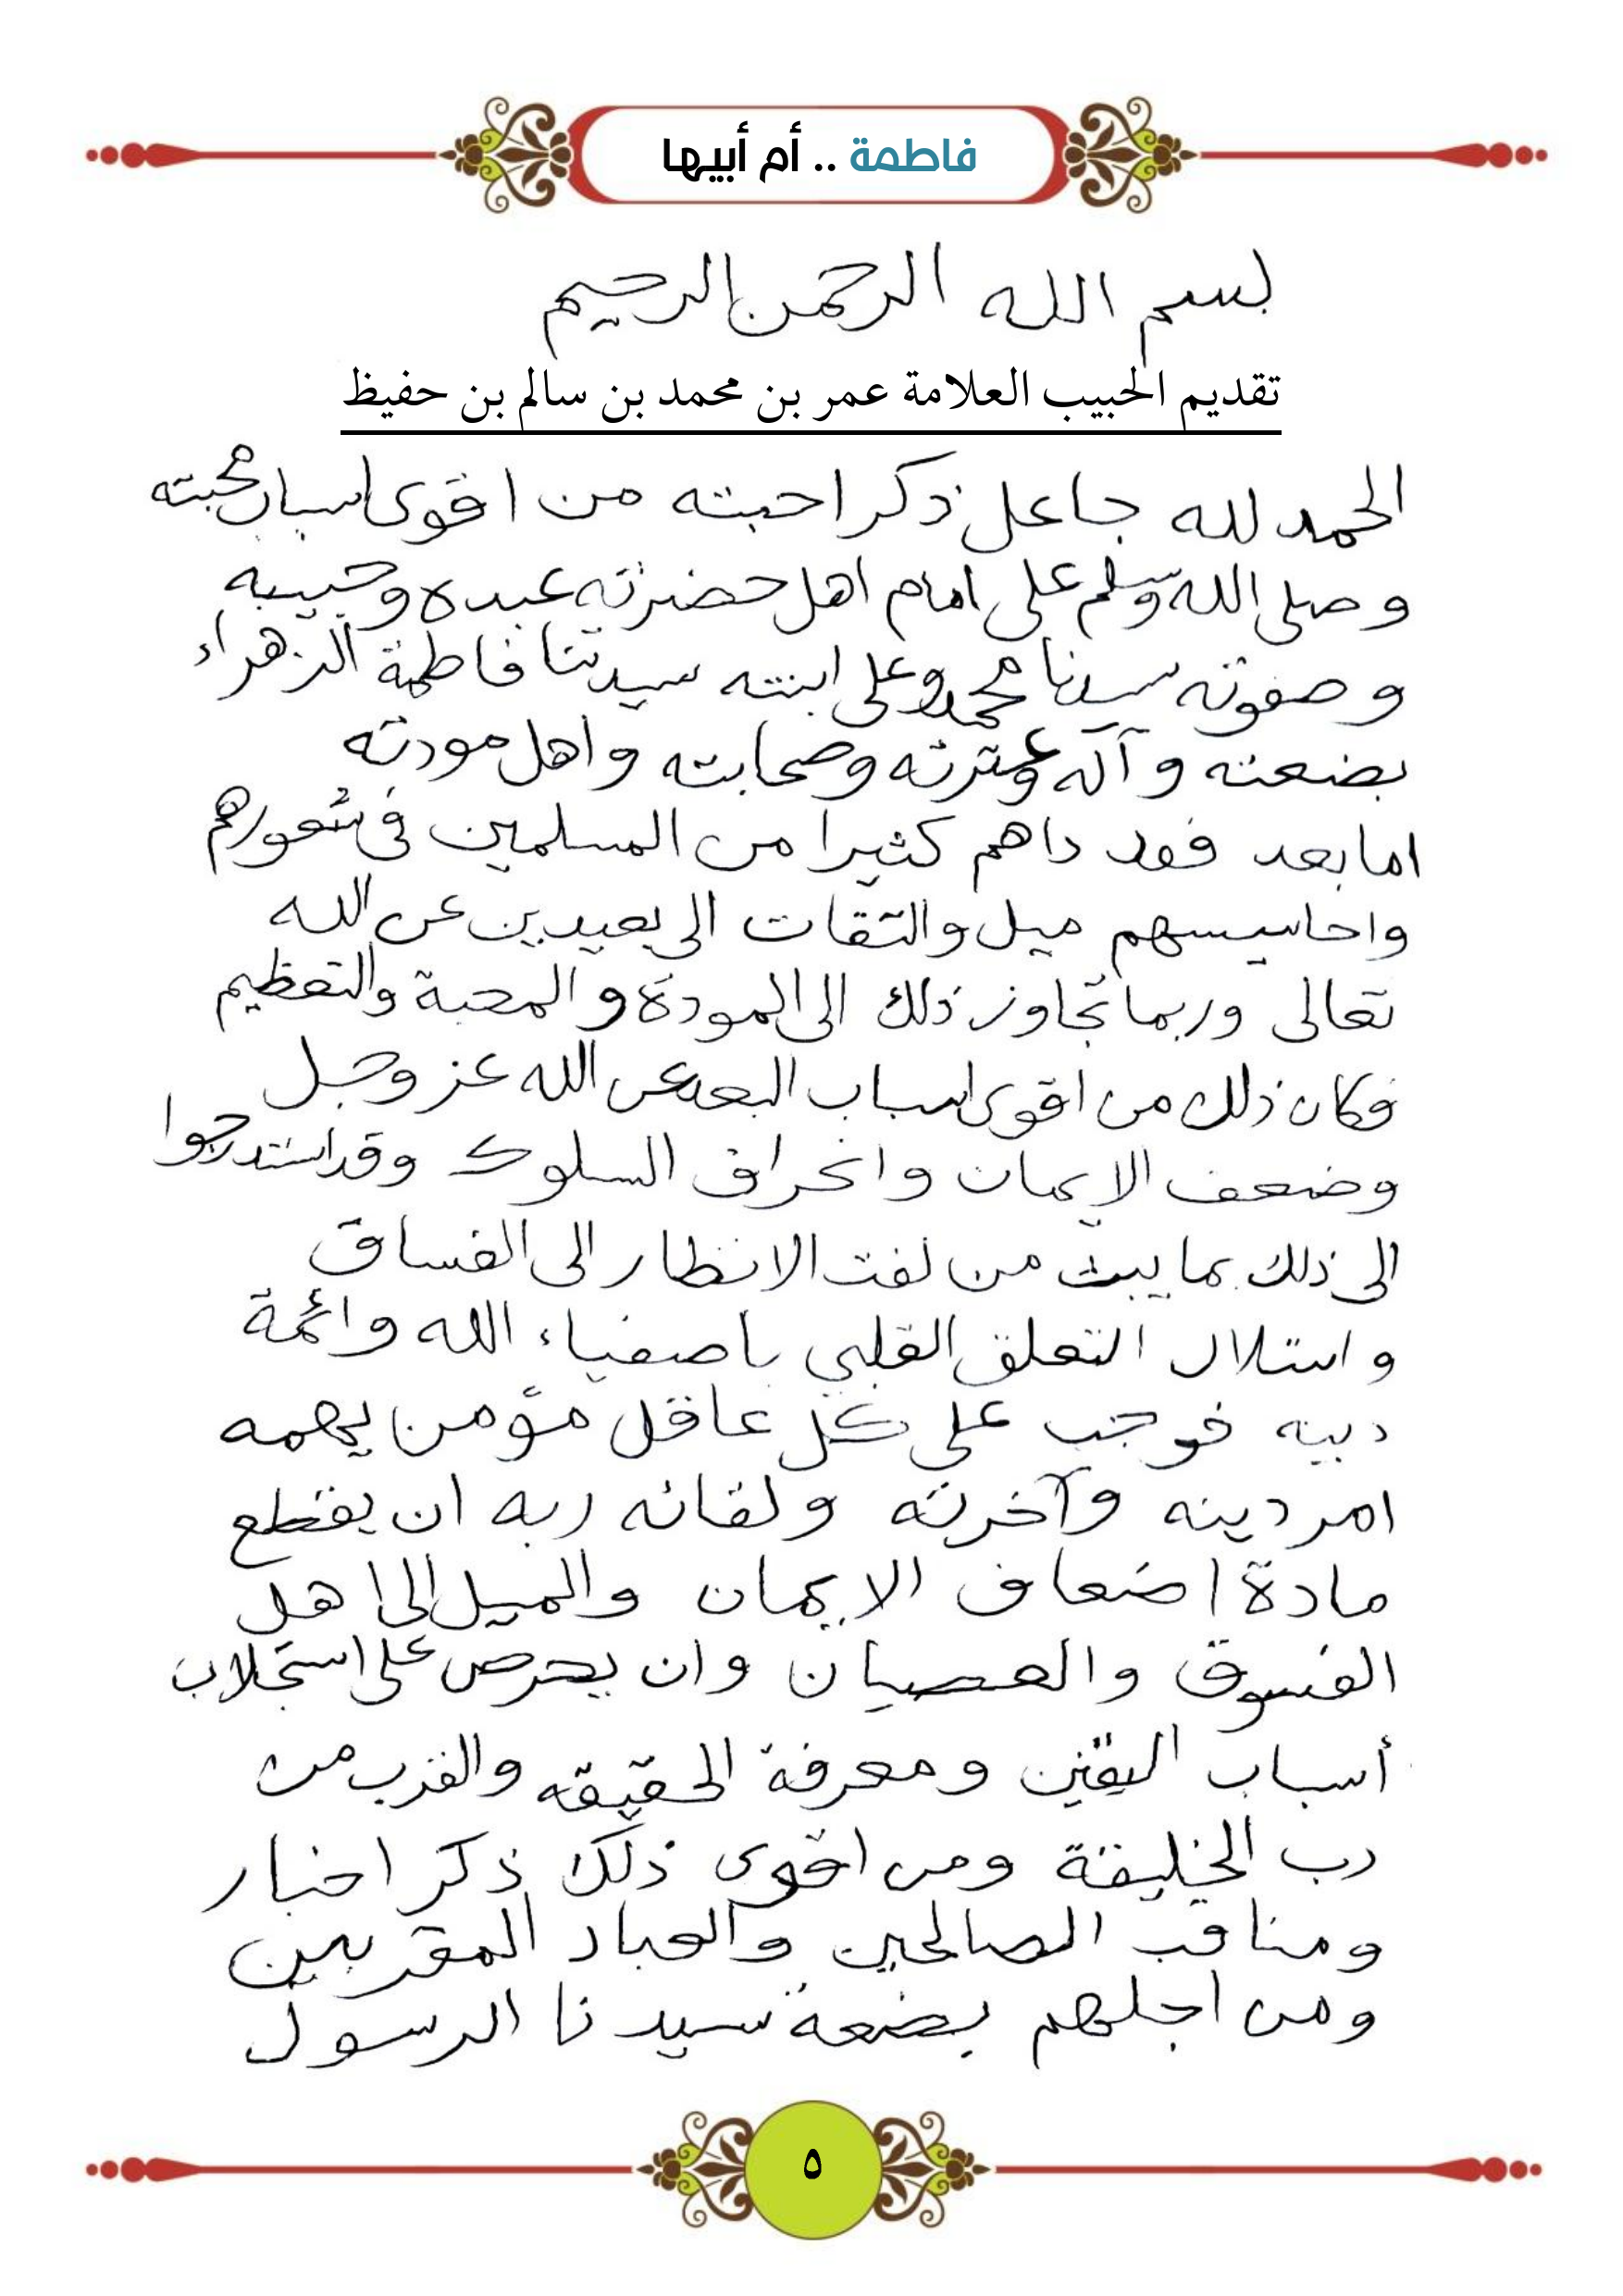 فاطمة .. أم أبيها
بسم الله الرحمن الرحيم
تقديم الحبيب العلامة عمر بن محمد بن سالم بن حفيظ
الحمد لله جاعل ذكر احبته من اقوى اسباب محبته
و صلى الله وسلم على امام اهل حضرته عبده وحبيبه
و صفوته سيدنا محمد وعلى ابنته سيدتنا فاطمة الزهراء
بضعته و آله وعترته وصحابته واهل مودته
اما بعد فقد داهم كثيرا من المسلمين في شعورهم
واحاسيسهم ميل والتفات الى بعيدين عن الله
تعالى وربما تجاوز ذلك الى المودة والمحبة والتعظيم
فكان ذلك من اقوى اسباب البعد عن الله عز وجل
وضعف الايمان وانحراف السلوك وقد استدرجوا
الى ذلك بما يبث من لفت الانظار الى الفساق
و استلال التعلق القلبي باصفياء الله وائمة
دينه فوجب على كل عاقل مؤمن يهمه
امر دينه وآخرته ولقائه ربه ان يقطع
مادة اضعاف الايمان والميل الى اهل
الفسوق والعصيان وان يحرص على استجلاب
أسباب اليقين ومعرفة الحقيقه والقرب من
رب الخليقة ومن اقوى ذلك ذكر اخبار
ومناقب الصالحين والعباد المقربين
ومن اجلهم بضعة سيدنا الرسول
٥